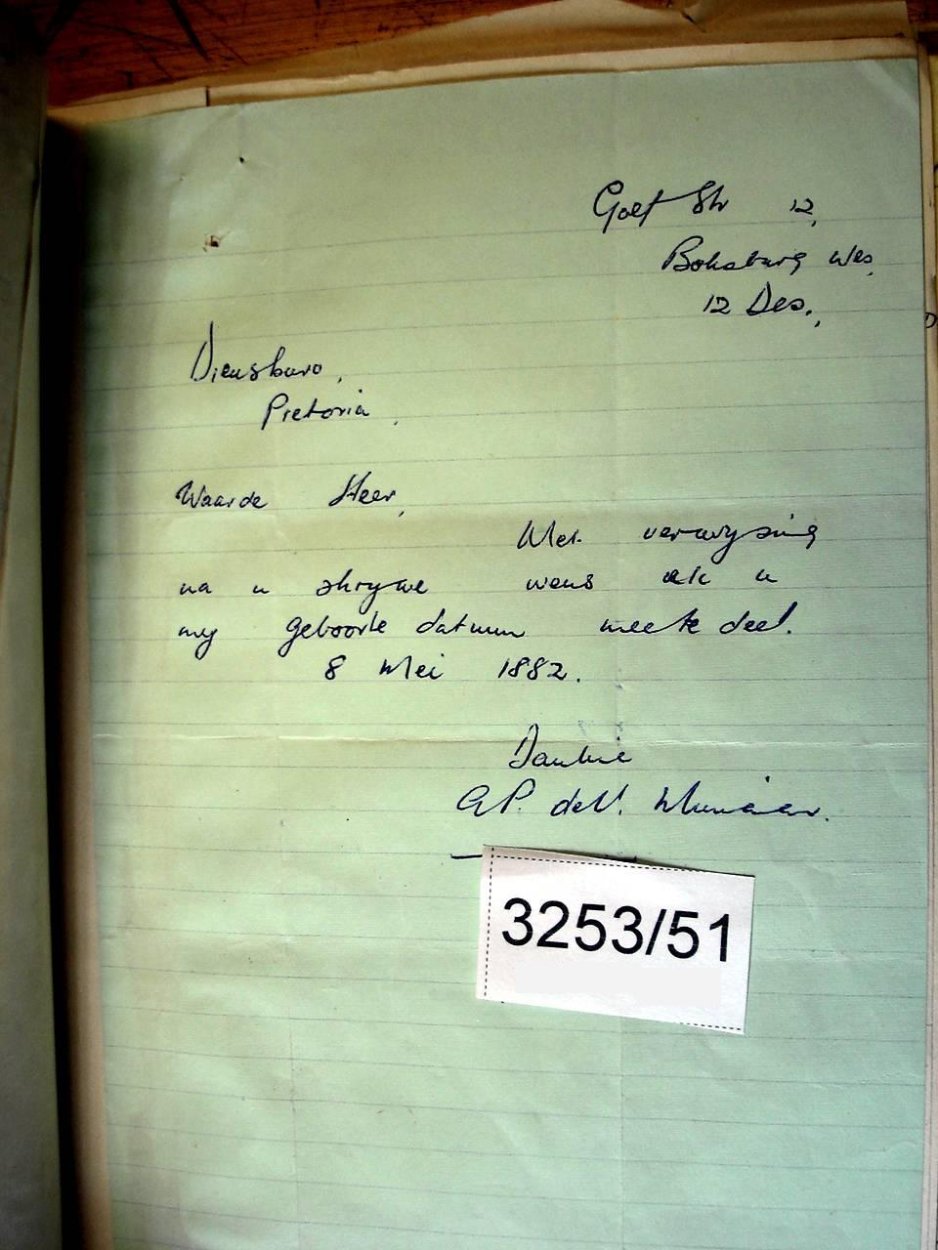 Golf Str 12,
Boksburg Wes,
12 Des.,
Diensburo,
Pretoria,
Waarde Heer,
Met verwysing
na u skrywe wens ek u
my geboorte datum meete deel.
8 Mei 1882.
Dankie
G.P. de V.
3253/51